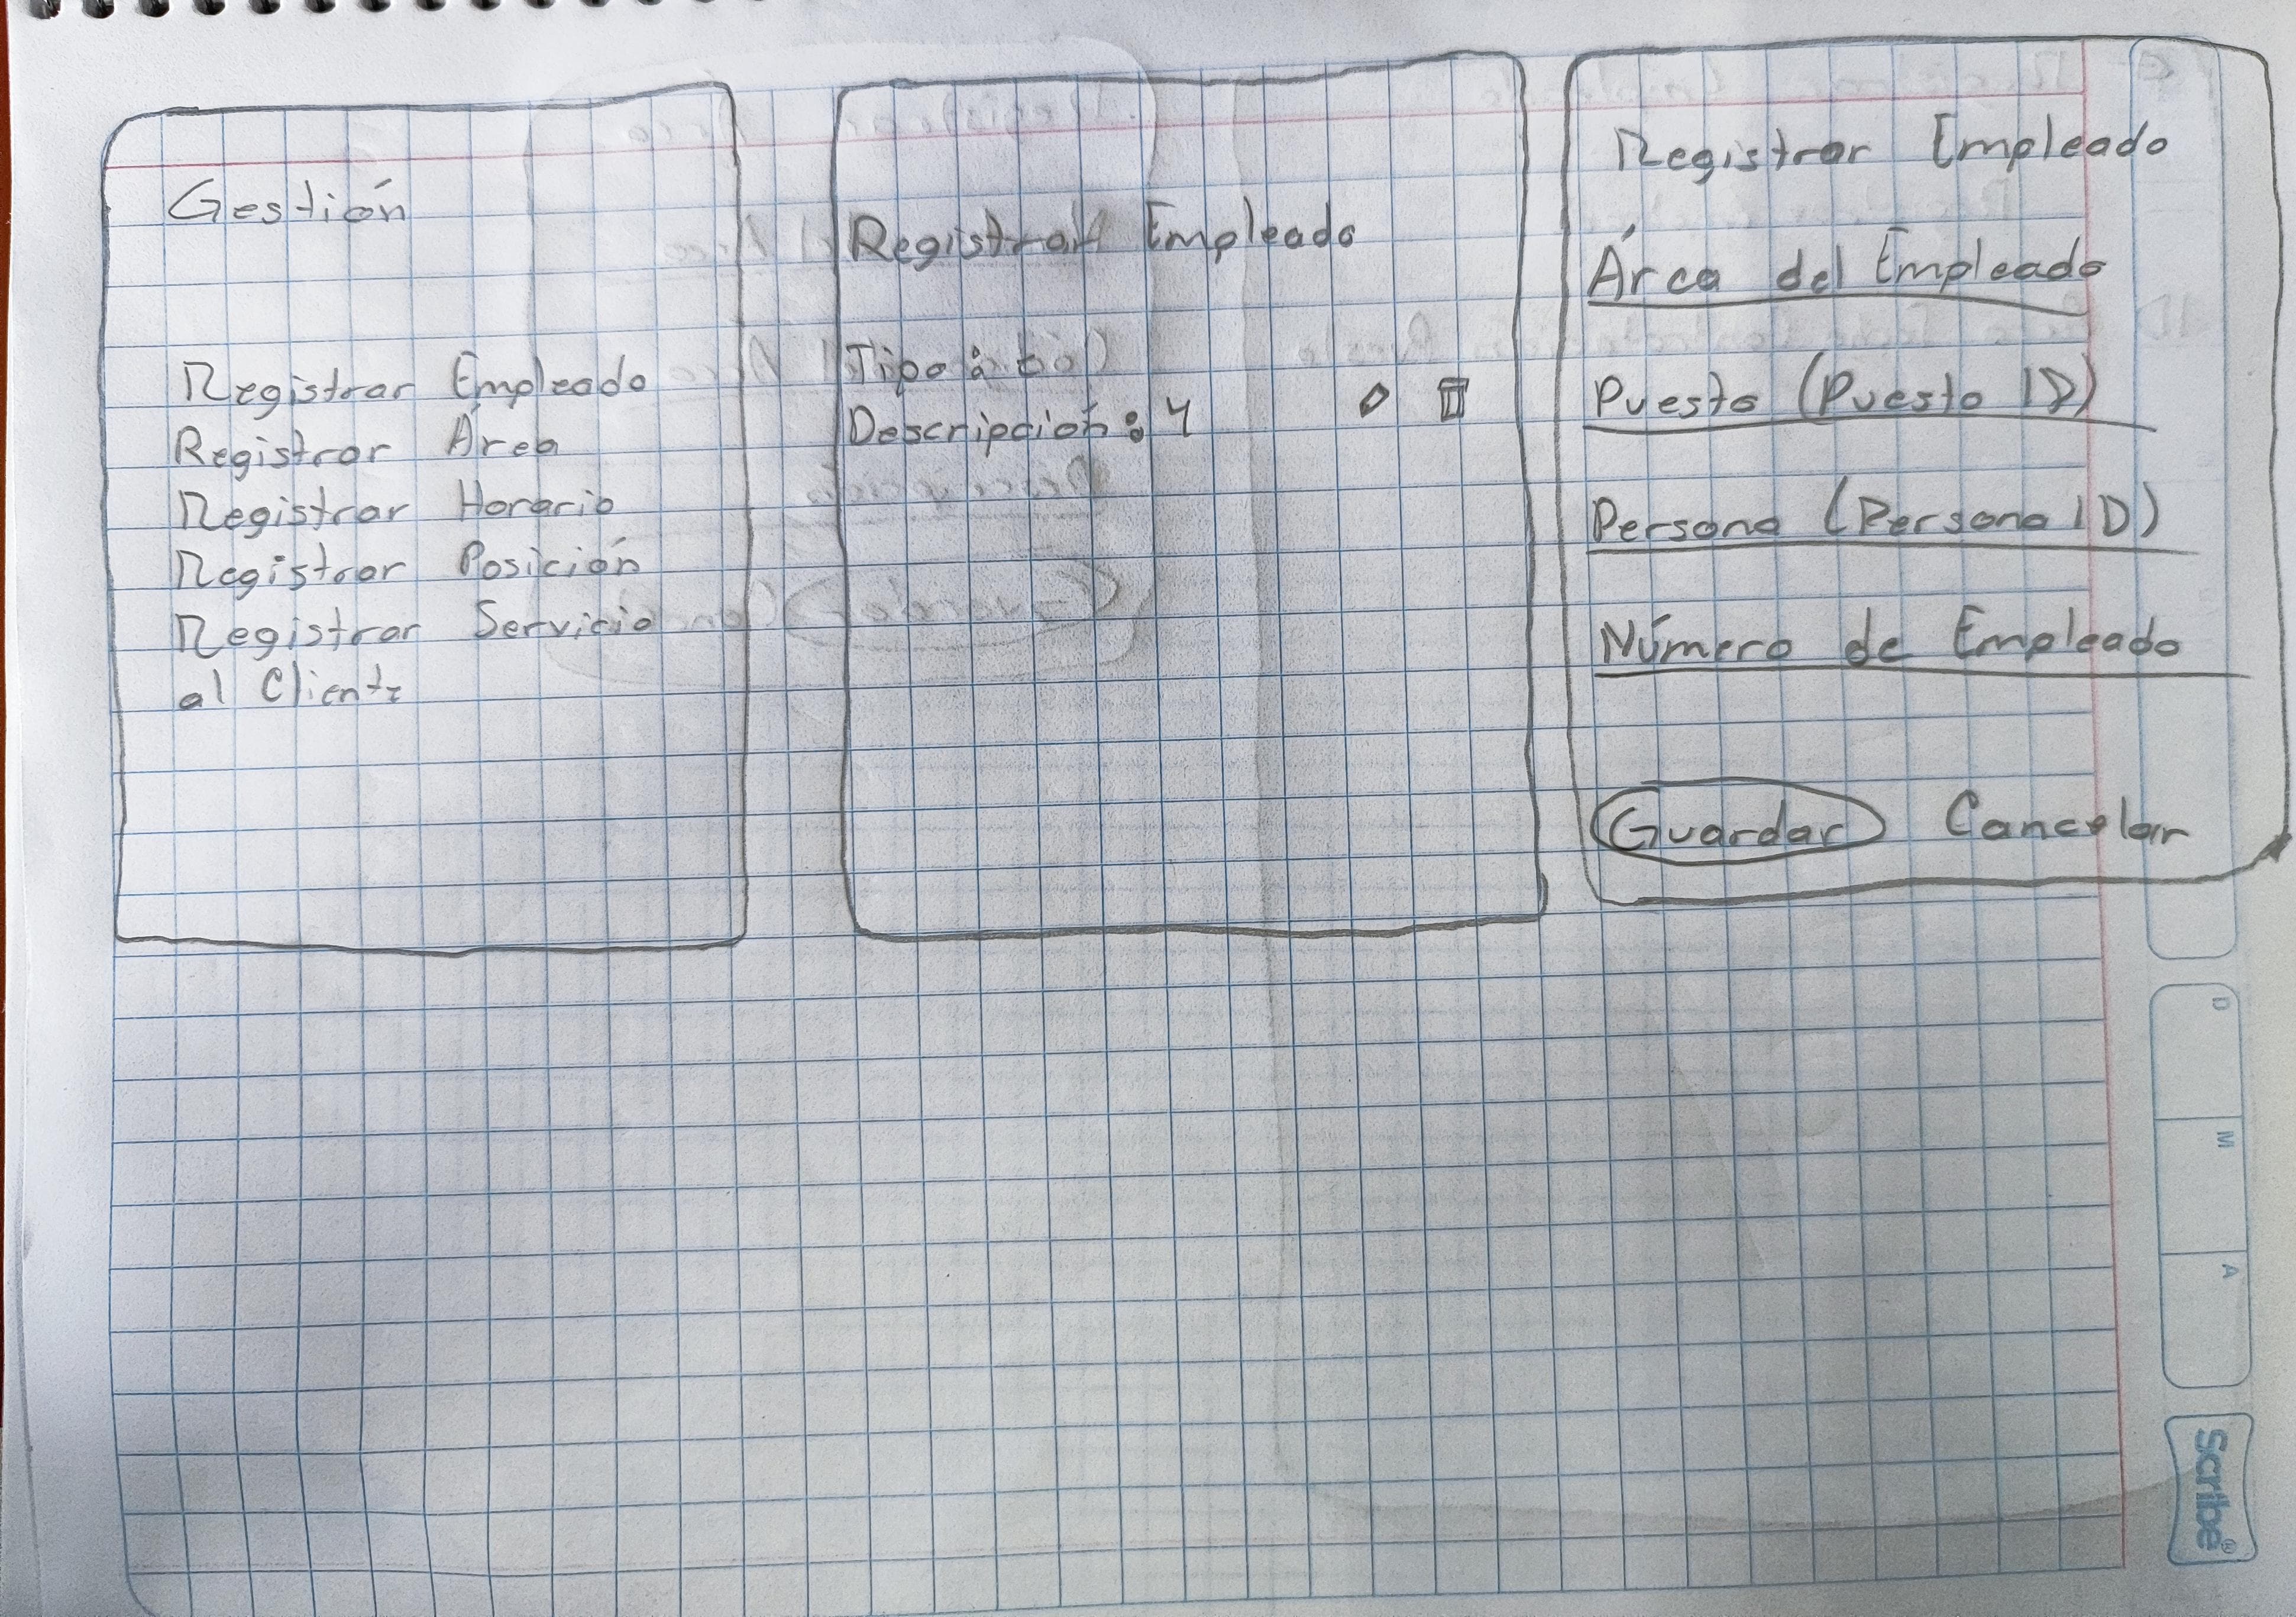 Gestión
Registrar Empleado
Registrar Área
Registrar Horario
Registrar Posición
Registrar Servicio
al Cliente
Registrar Empleado
Tipo :
Descripción : y
Registrar Empleado
Área del Empleado
Puesto (Puesto ID)
Persona (Persona ID)
Número de Empleado
Guardar Cancelar
D
M
A
Scribe®